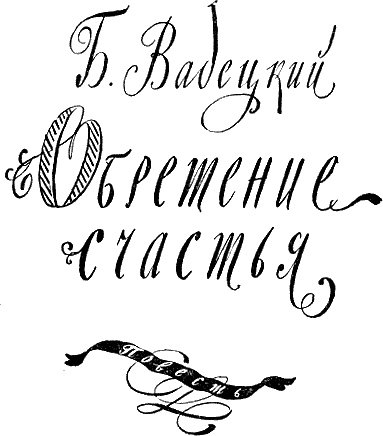 Б. Вадецкий
Обретение
счастья
повесть